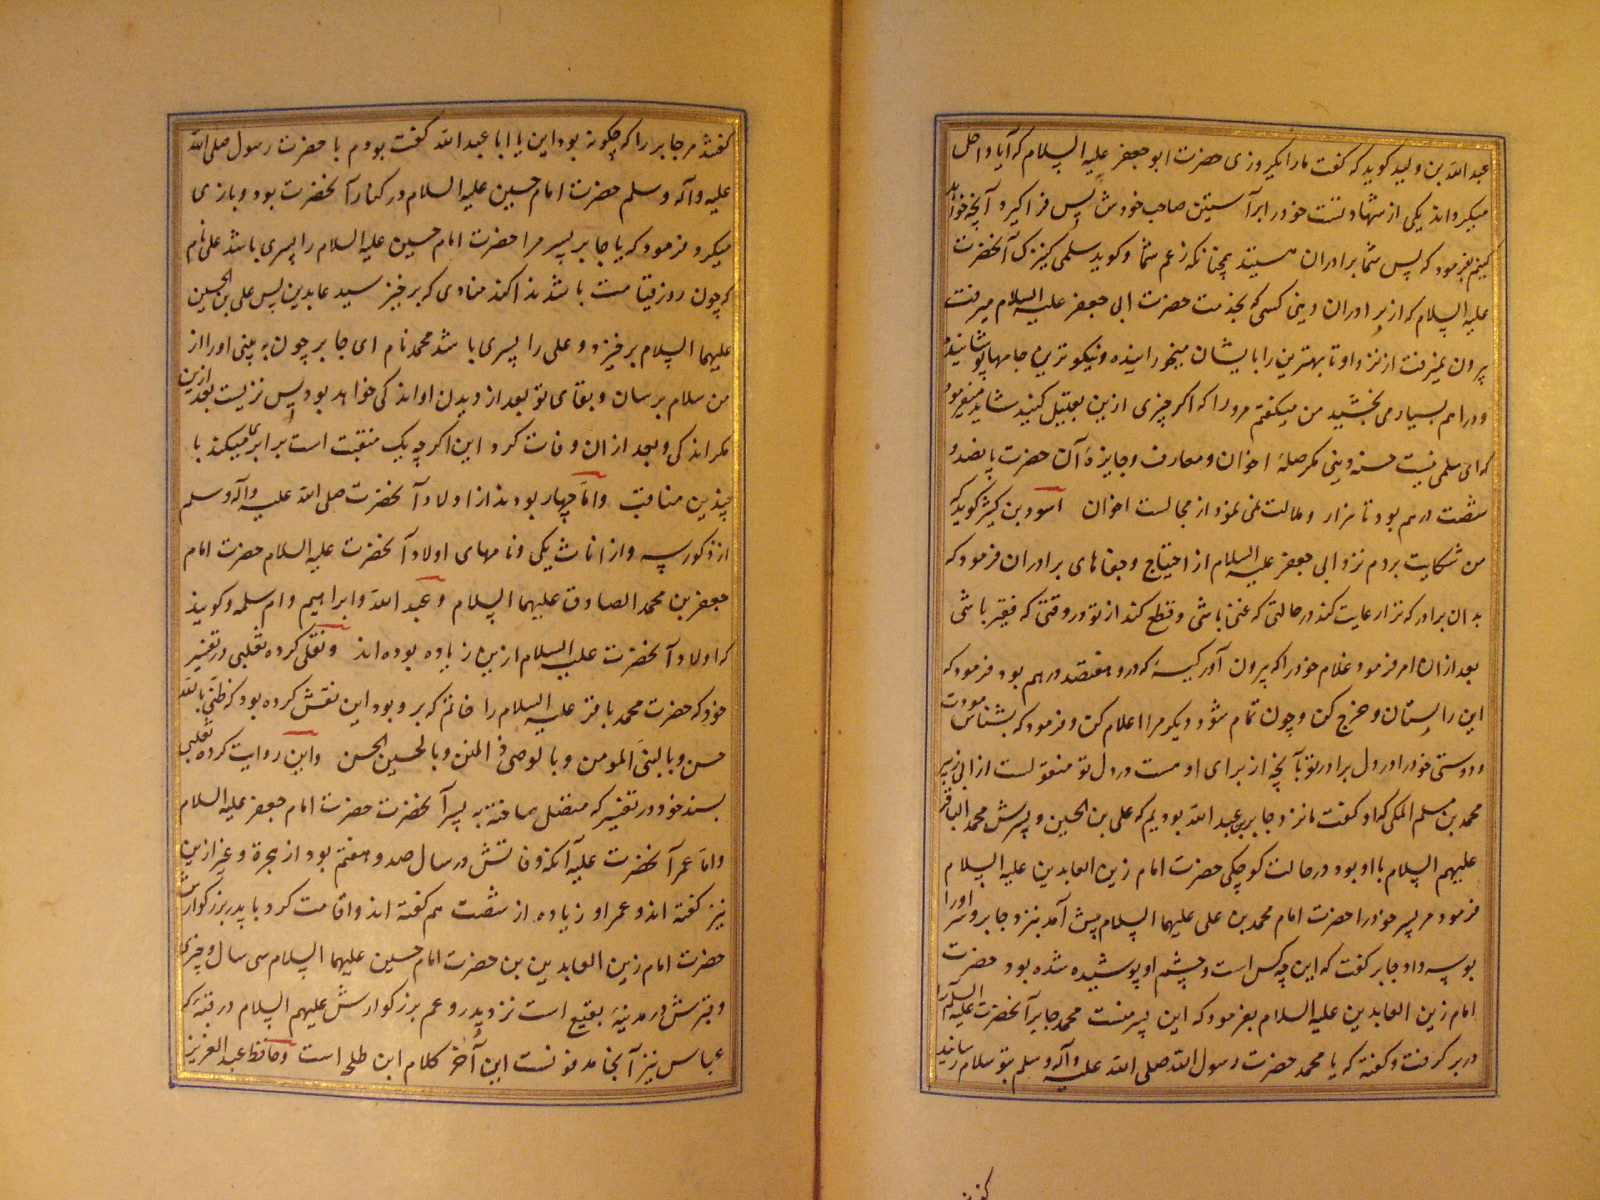 عبد الله بن ولید کوید که کفت مارا یکروزی حضرت ابو جعفر علیه السلام که آیا داخل
میکرداند یکی از شما دست خود را بر آستین صاحب خودش پس فرا کیرد آنچه خواهد
کفتیم نه فرمود که پس شما برادران نیستید همچنانکه زعم شما و کوید سلمی کنیزک آنحضرت
علیه السلام که از برادران دینی کسی که بخدمت حضرت ابی جعفر علیه السلام میرفت
بیرون نمیرفت از نزد او تا بهترین را بایشان میخورانیده و نیکوترین جامها پوشانیده
و دراهم بسیار می بخشید من میکفتم مرو را که اکر چیزی ازین تقلیل کنید شاید میفرمود
که ای سلمی نیست حسنه دینی مکر صلهٔ اخوان و معارف و جایزهٔ آن حضرت پانصد و
شصت درهم بود تا هزار و ملالت نمی نمود از مجالست اخوان اسود بن کثیر کوید که
من شکایت بردم نزد ابی جعفر علیه السلام از احتیاج و جفاهای برادران فرمود که
بد ان برادر که ترا رعایت کند در حالتی که غنی باشی و قطع کند از تو در وقتی که فقیر باشی
بعد ازان امر فرمود غلام خود را که بیرون آور کیسهٔ که درو هفتصد درهم بود فرمود که
این را بستان و خرج کن و چون تمام شود دیکر مرا اعلام کن و فرمود که بشناس مودت
و دوستی خود را در دل برادر تو بآنچه از برای او هست در دل تو منقولست از ابی زبیر
محمد بن مسلم المکی که او کفت ما نزد جابر بن عبد الله بودیم که علی بن الحسین و پسرش محمد الباقر
علیهم السلام با او بود در حالت کوچکی حضرت امام زین العابدین علیه السلام
فرمود مر پسر خود را حضرت امام محمد بن علی علیهما السلام پیش آمد بنزد جابر و سر او را
بوسه داد جابر کفت که این چه کس است و چشم او پوشیده شده بود حضرت
امام زین العابدین علیه السلام بفرمود که این پسر منست محمد جابر آنحضرت علیه السلام را
در بر کرفت و کفته که یا محمد حضرت رسول الله صلی الله علیه وآله وسلم بتو سلام رسانید
کفتند مر جابر را که چکونه بود این یا ابا عبد الله کفت بودم با حضرت رسول صلی الله
علیه وآله وسلم حضرت امام حسین علیه السلام در کنار آنحضرت بود و بازی
میکرد فرمود که یا جابر پسر مرا حضرت امام حسین علیه السلام را پسری باشد علی نام
که چون روز قیامت باشد ندا کند منادی که برخیز سید عابدین پس علی بن الحسین
علیهما السلام برخیزد و علی را پسری باشد محمد نام ای جابر چون به بینی او را از
من سلام برسان و بقای تو بعد از دیدن او اندکی خواهد بود پس نزیست بعد ازین
مکر اندکی و بعد ازان وفات کرد این اکرچه یک منقبت است برابری میکند با
چندین مناقب واما چهار بودند از اولاد آنحضرت صلی الله علیه وآله وسلم
از ذکور سه و از اناث یکی و نامهای اولاد آنحضرت علیه السلام حضرت امام
جعفر بن محمد الصادق علیهما السلام و عبد الله و ابراهیم و ام سلمه و کویند
که اولاد آنحضرت علیه السلام ازین زیاده بوده اند و نقل کرده ثعلبی در تفسیر
خود که حضرت محمد باقر علیه السلام را خاتم که بر و بود این نقش کرده بود که ظنی بالله
حسن وبالنبی المؤمن وبالوصی ذی المنن وبالحسین الحسن واین روایت کرده ثعلبی
بسند خود در تفسیر که متصل ساخته به پسر آنحضرت حضرت امام جعفر علیه السلام
واما عمر آنحضرت علیه آنکه وفاتش در سال صد و هفتم بود از هجرة و غیر ازین
نیز کفته اند و عمر او زیاده از شصت هم کفته اند و اقامت کرد با پدر بزرکوارش
حضرت امام زین العابدین بن حضرت امام حسین علیهما السلام سی سال و چیزی
و قبرش در مدینهٔ بقیع است نزد پدر و عم بزرکوارش علیهم السلام در قبهٔ که
عباس نیز آنجا مدفونست این آخر کلام ابن طلحه است و حافظ عبد العزیز